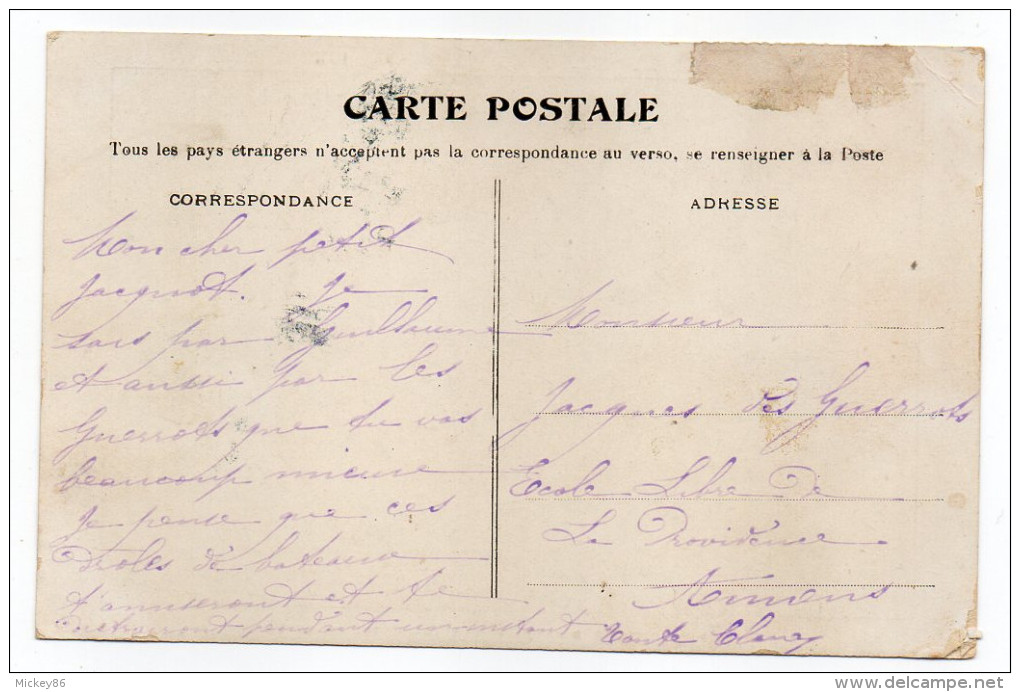 CARTE POSTALE
Tous les pays étrangers n'acceptent pas la correspondance au verso, se renseigner à la Poste
CORRESPONDANCE
Mon cher petit
Jacquot. Je
sais par Guillaume
et aussi par les
Guerrots que tu vas
beaucoup mieux
Je pense que ces
drôles de bateaux
t'amuseront et te
pendant un instant
Tante
ADRESSE
Monsieur
Jacques des Guerrots
Ecole Libre de
La Providence
Amiens
Mickey86
www.delcampe.net